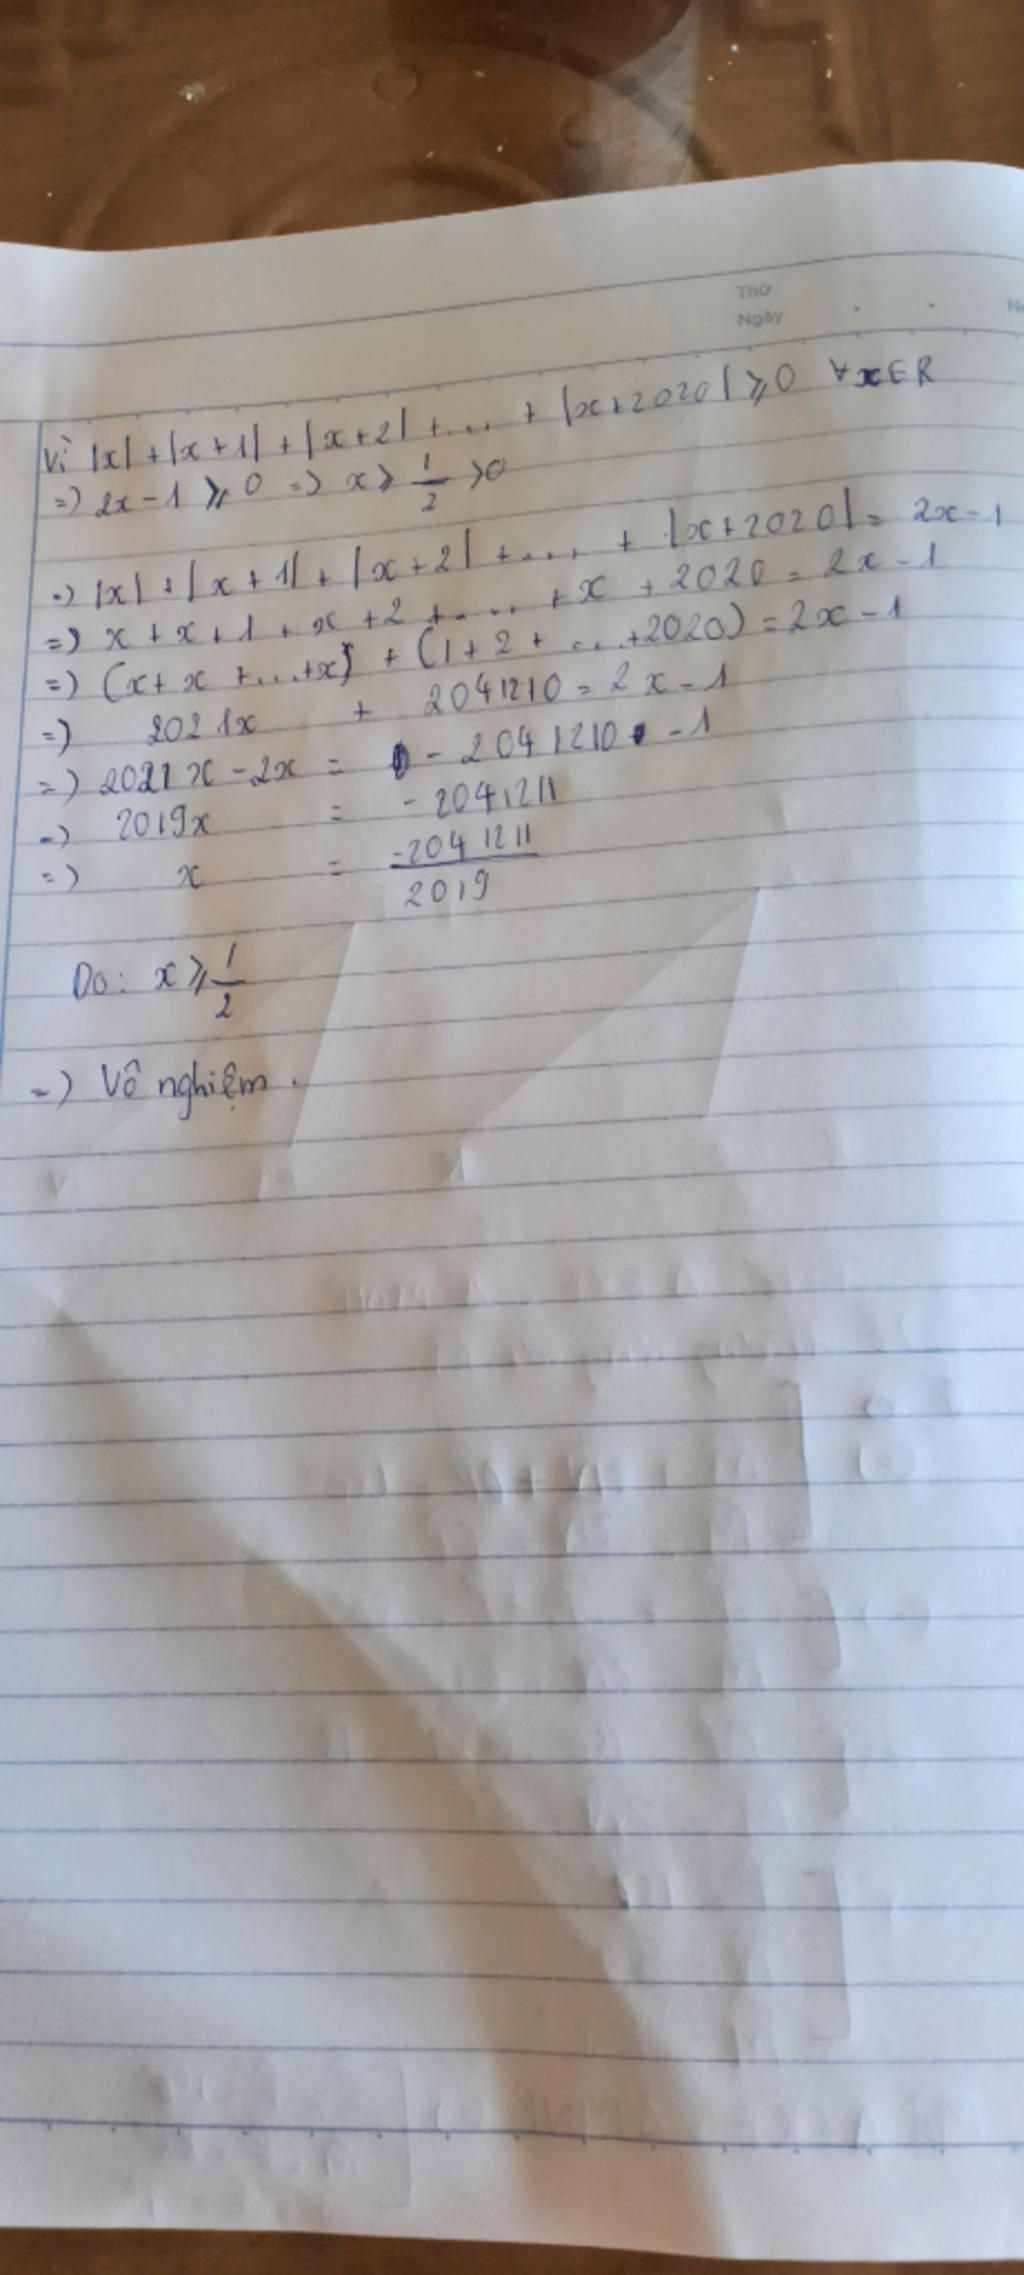 Thứ
Ngày
Vì |x| + |x+1| + |x+2| + .... + |x+2020| ⩾ 0 ∀x∈R
=) 2x - 1 ⩾ 0 =) x ⩾ 1/2 > 0
=) |x| + |x+1| + |x+2| + .... + |x+2020| = 2x-1
=) x + x + 1 + x + 2 + .... + x + 2020 = 2x - 1
=) (x + x + ... + x) + (1 + 2 + ... + 2020) = 2x - 1
=) 2021x + 2041210 = 2x - 1
=) 2021x - 2x = - 2041210 - 1
=) 2019x = - 2041211
=) x = -2041211/2019
Do: x ⩾ 1/2
=) Vô nghiệm.